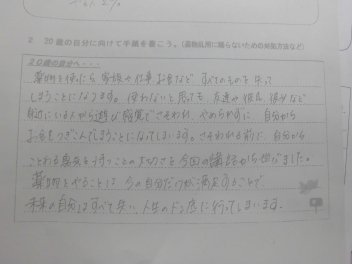 2 20歳の自分に向けて手紙を書こう。(薬物乱用に陥らないための対処方法など)
20歳の自分へ・・・・
薬物を使ったら家族や仕事、お金など すべてのものを失って
しまうことになります。使わないと思っても、友達や彼氏、彼女など
身近にいる人から遊び感覚でさそわれ、やめられずに 自分から
お金をつぎこんでしまうことになってしまいます。さそわれる前に、自分から
ことわる勇気を持つことの大切さを今回の講師から学びました。
薬物をやることは、今の自分だけが満足することで
未来の自分はすべて失い、人生のドン底に行ってしまいます。